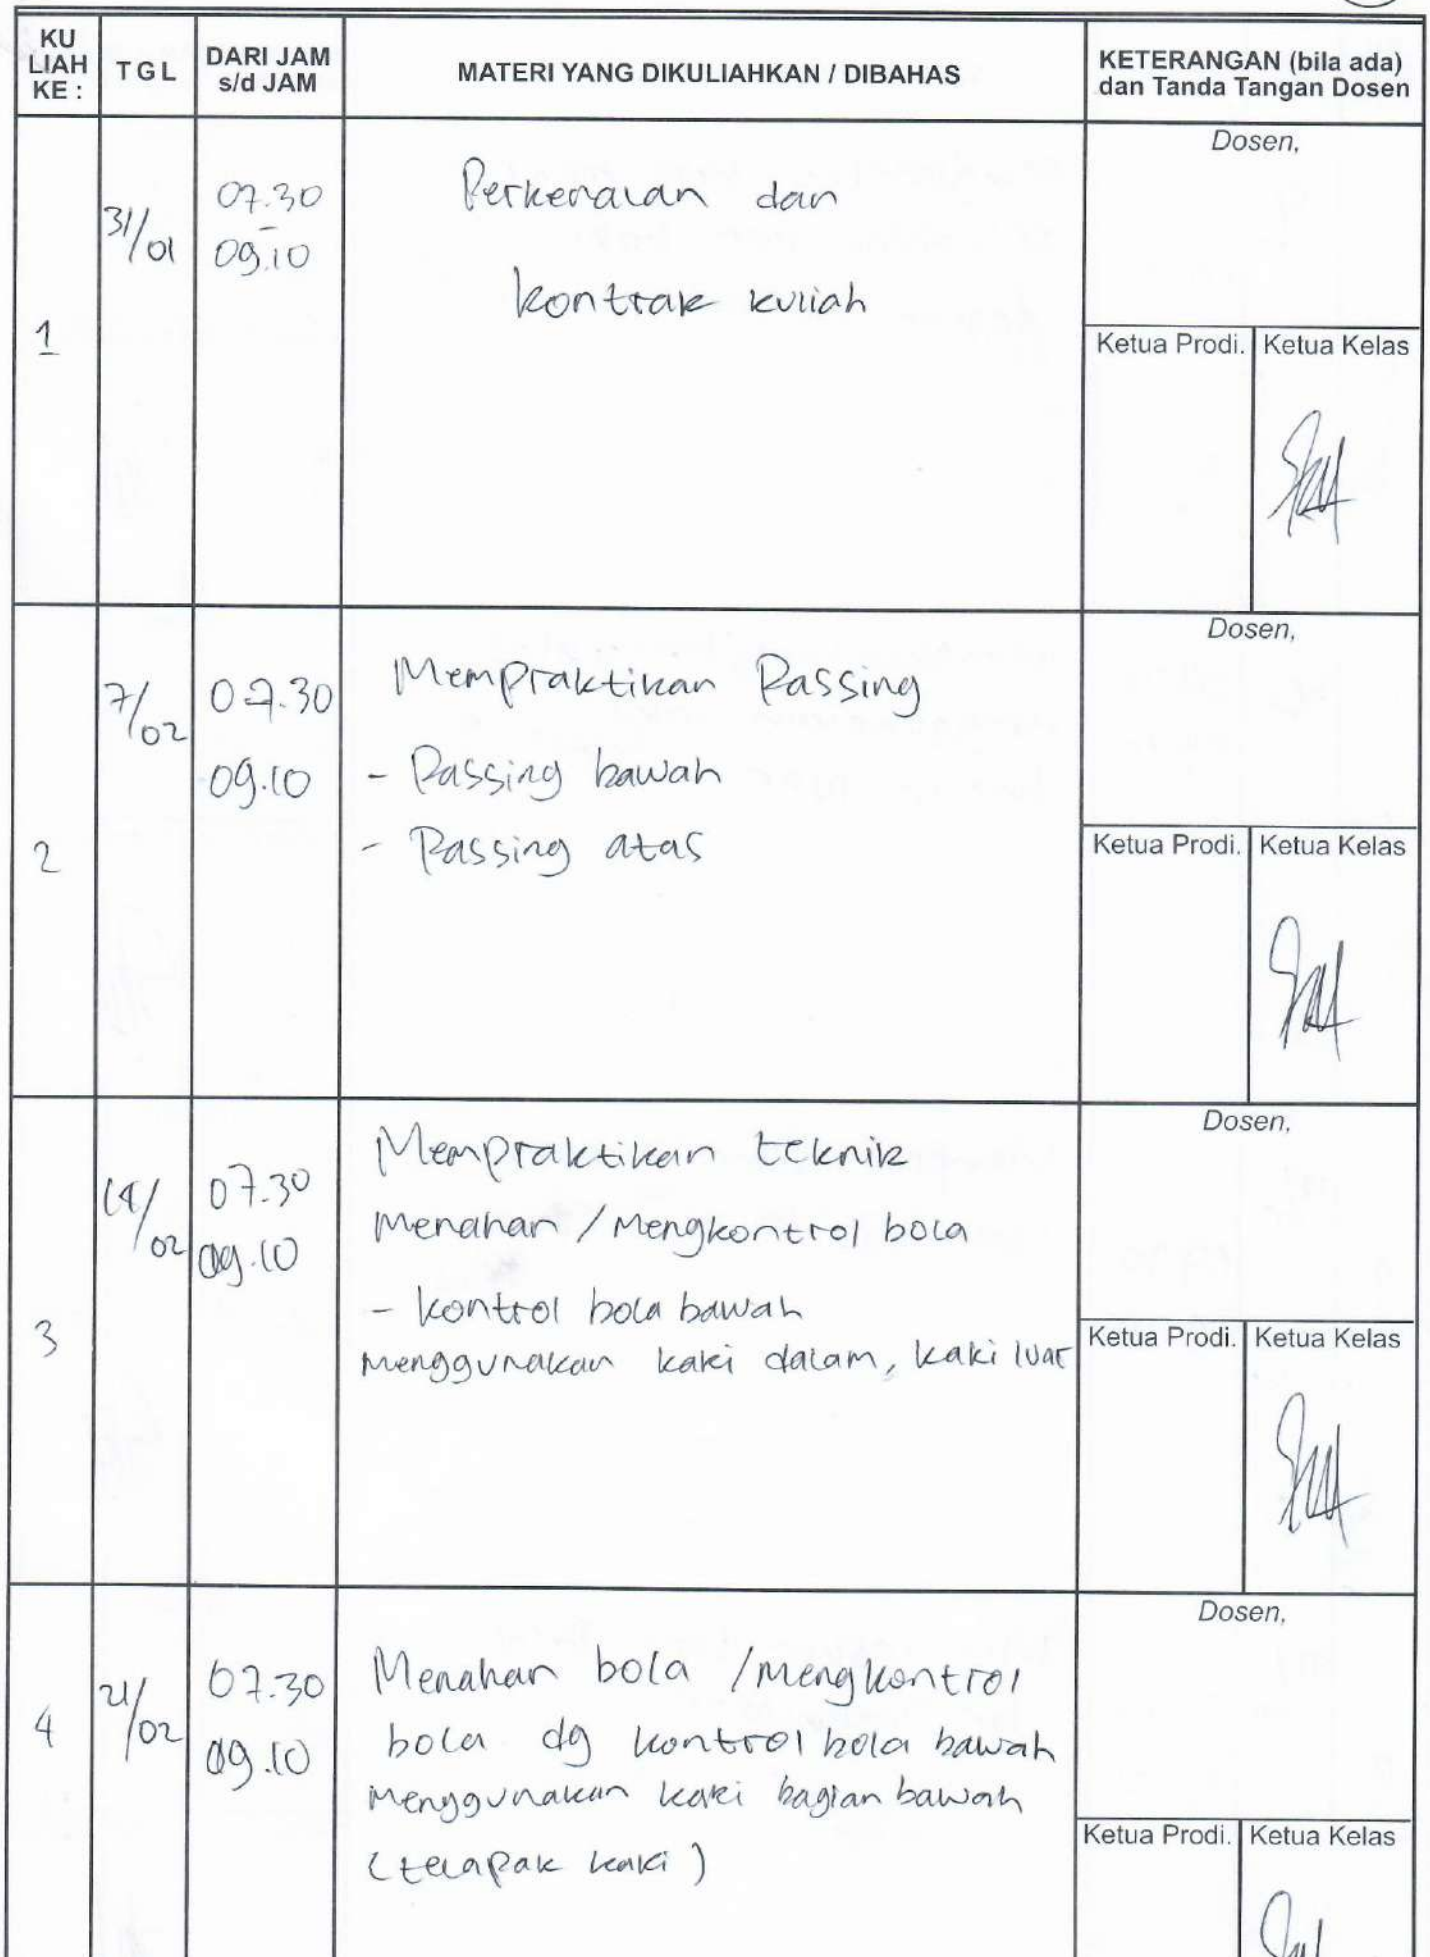 KU LIAH KE :
TGL
DARI JAM s/d JAM
MATERI YANG DIKULIAHKAN / DIBAHAS
KETERANGAN (bila ada) dan Tanda Tangan Dosen
1
31/01
07.30
-
09.10
Perkenalan dan
kontrak kuliah
Dosen,
Ketua Prodi.
Ketua Kelas
2
7/02
07.30
09.10
Mempraktikan Passing
- Passing bawah
- Passing atas
Dosen,
Ketua Prodi.
Ketua Kelas
3
14/02
07.30
09.10
Mempraktikan teknik
Menahan / Mengkontrol bola
- kontrol bola bawah
menggunakan kaki dalam, kaki luar
Dosen,
Ketua Prodi.
Ketua Kelas
4
21/02
07.30
09.10
Menahan bola / mengkontrol
bola dg kontrol bola bawah
menggunakan kaki bagian bawah
(telapak kaki)
Dosen,
Ketua Prodi.
Ketua Kelas